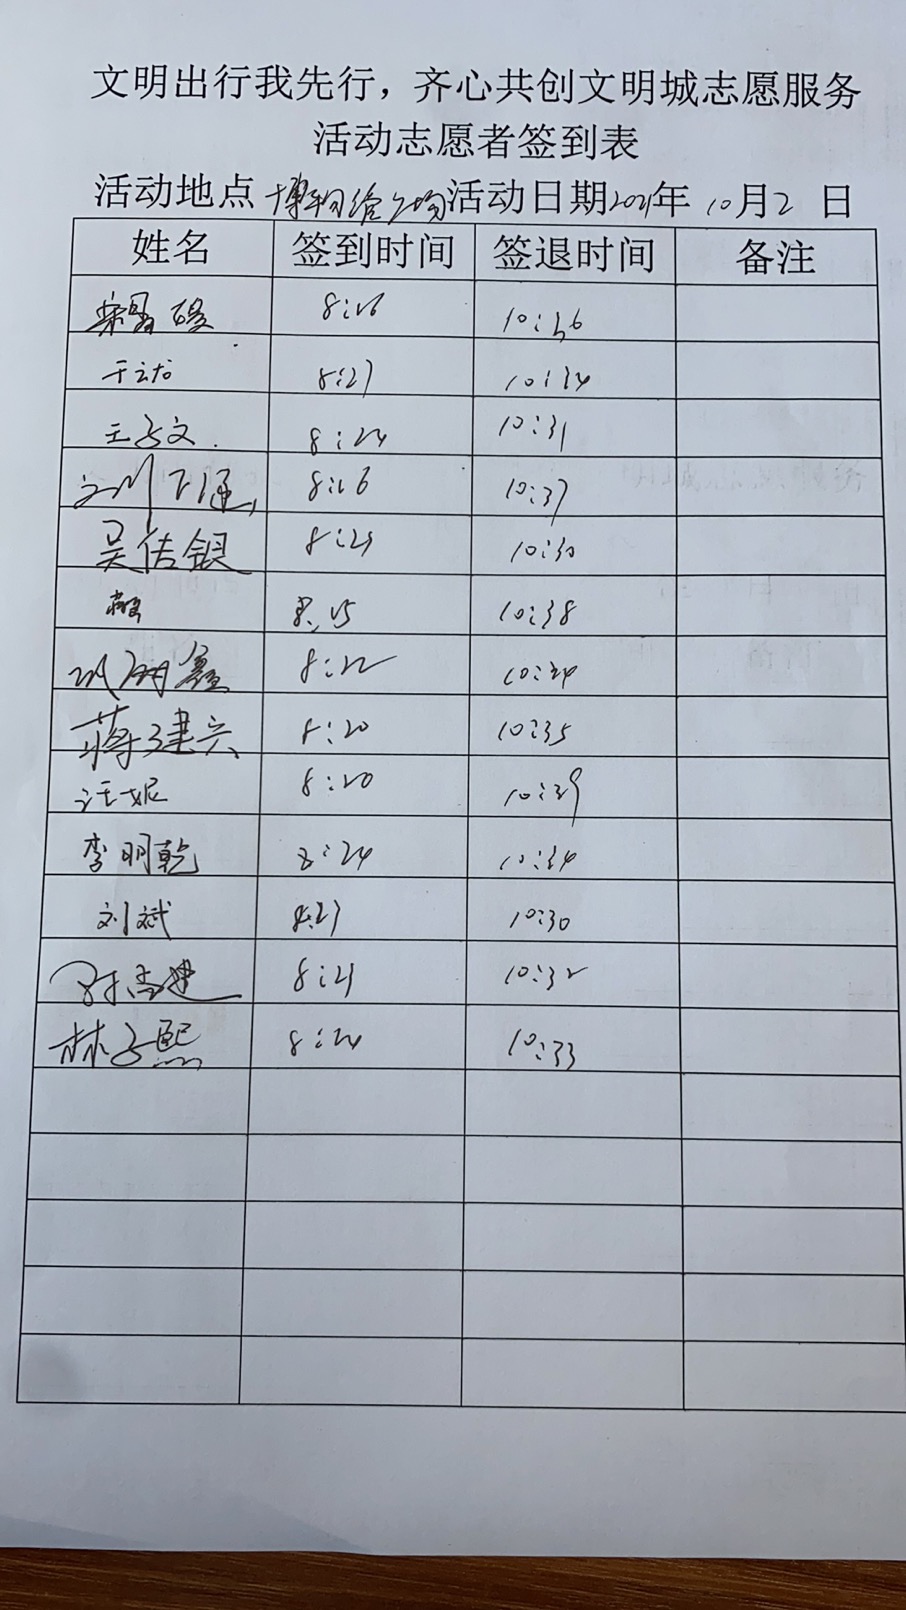 文明出行我先行，齐心共创文明城志愿服务
活动志愿者签到表
活动地点 活动日期2021年 10月2 日
姓名 签到时间 签退时间 备注
10:36
8:27 10:34
王子文 8:24 10:31
8:26 10:37
吴佶银 8:21 10:30
10:38
8:22 10:34
蒋建兴 8:20 10:35
汪妮 8:20 10:39
李明乾 8:24 10:34
刘斌 8:27 10:30
8:21 10:32
林子熙 8:24 10:33